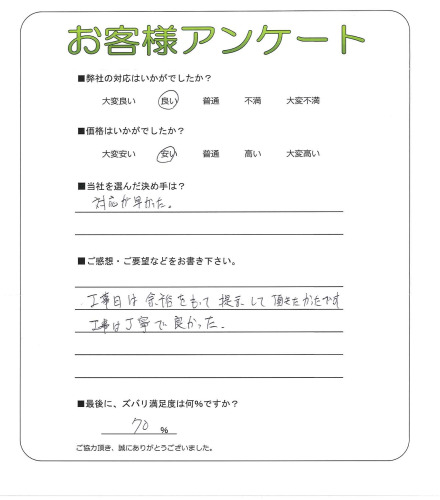 お客様アンケート
■弊社の対応はいかがでしたか？
大変良い 良い 普通 不満 大変不満
■価格はいかがでしたか？
大変安い 安い 普通 高い 大変高い
■当社を選んだ決め手は？
対応が早かた。
■ご感想・ご要望などをお書き下さい。
工事日は余裕をもって提示して頂きたかたです
工事は丁寧で良かった。
■最後に、ズバリ満足度は何%ですか？
70 %
ご協力頂き、誠にありがとうございました。